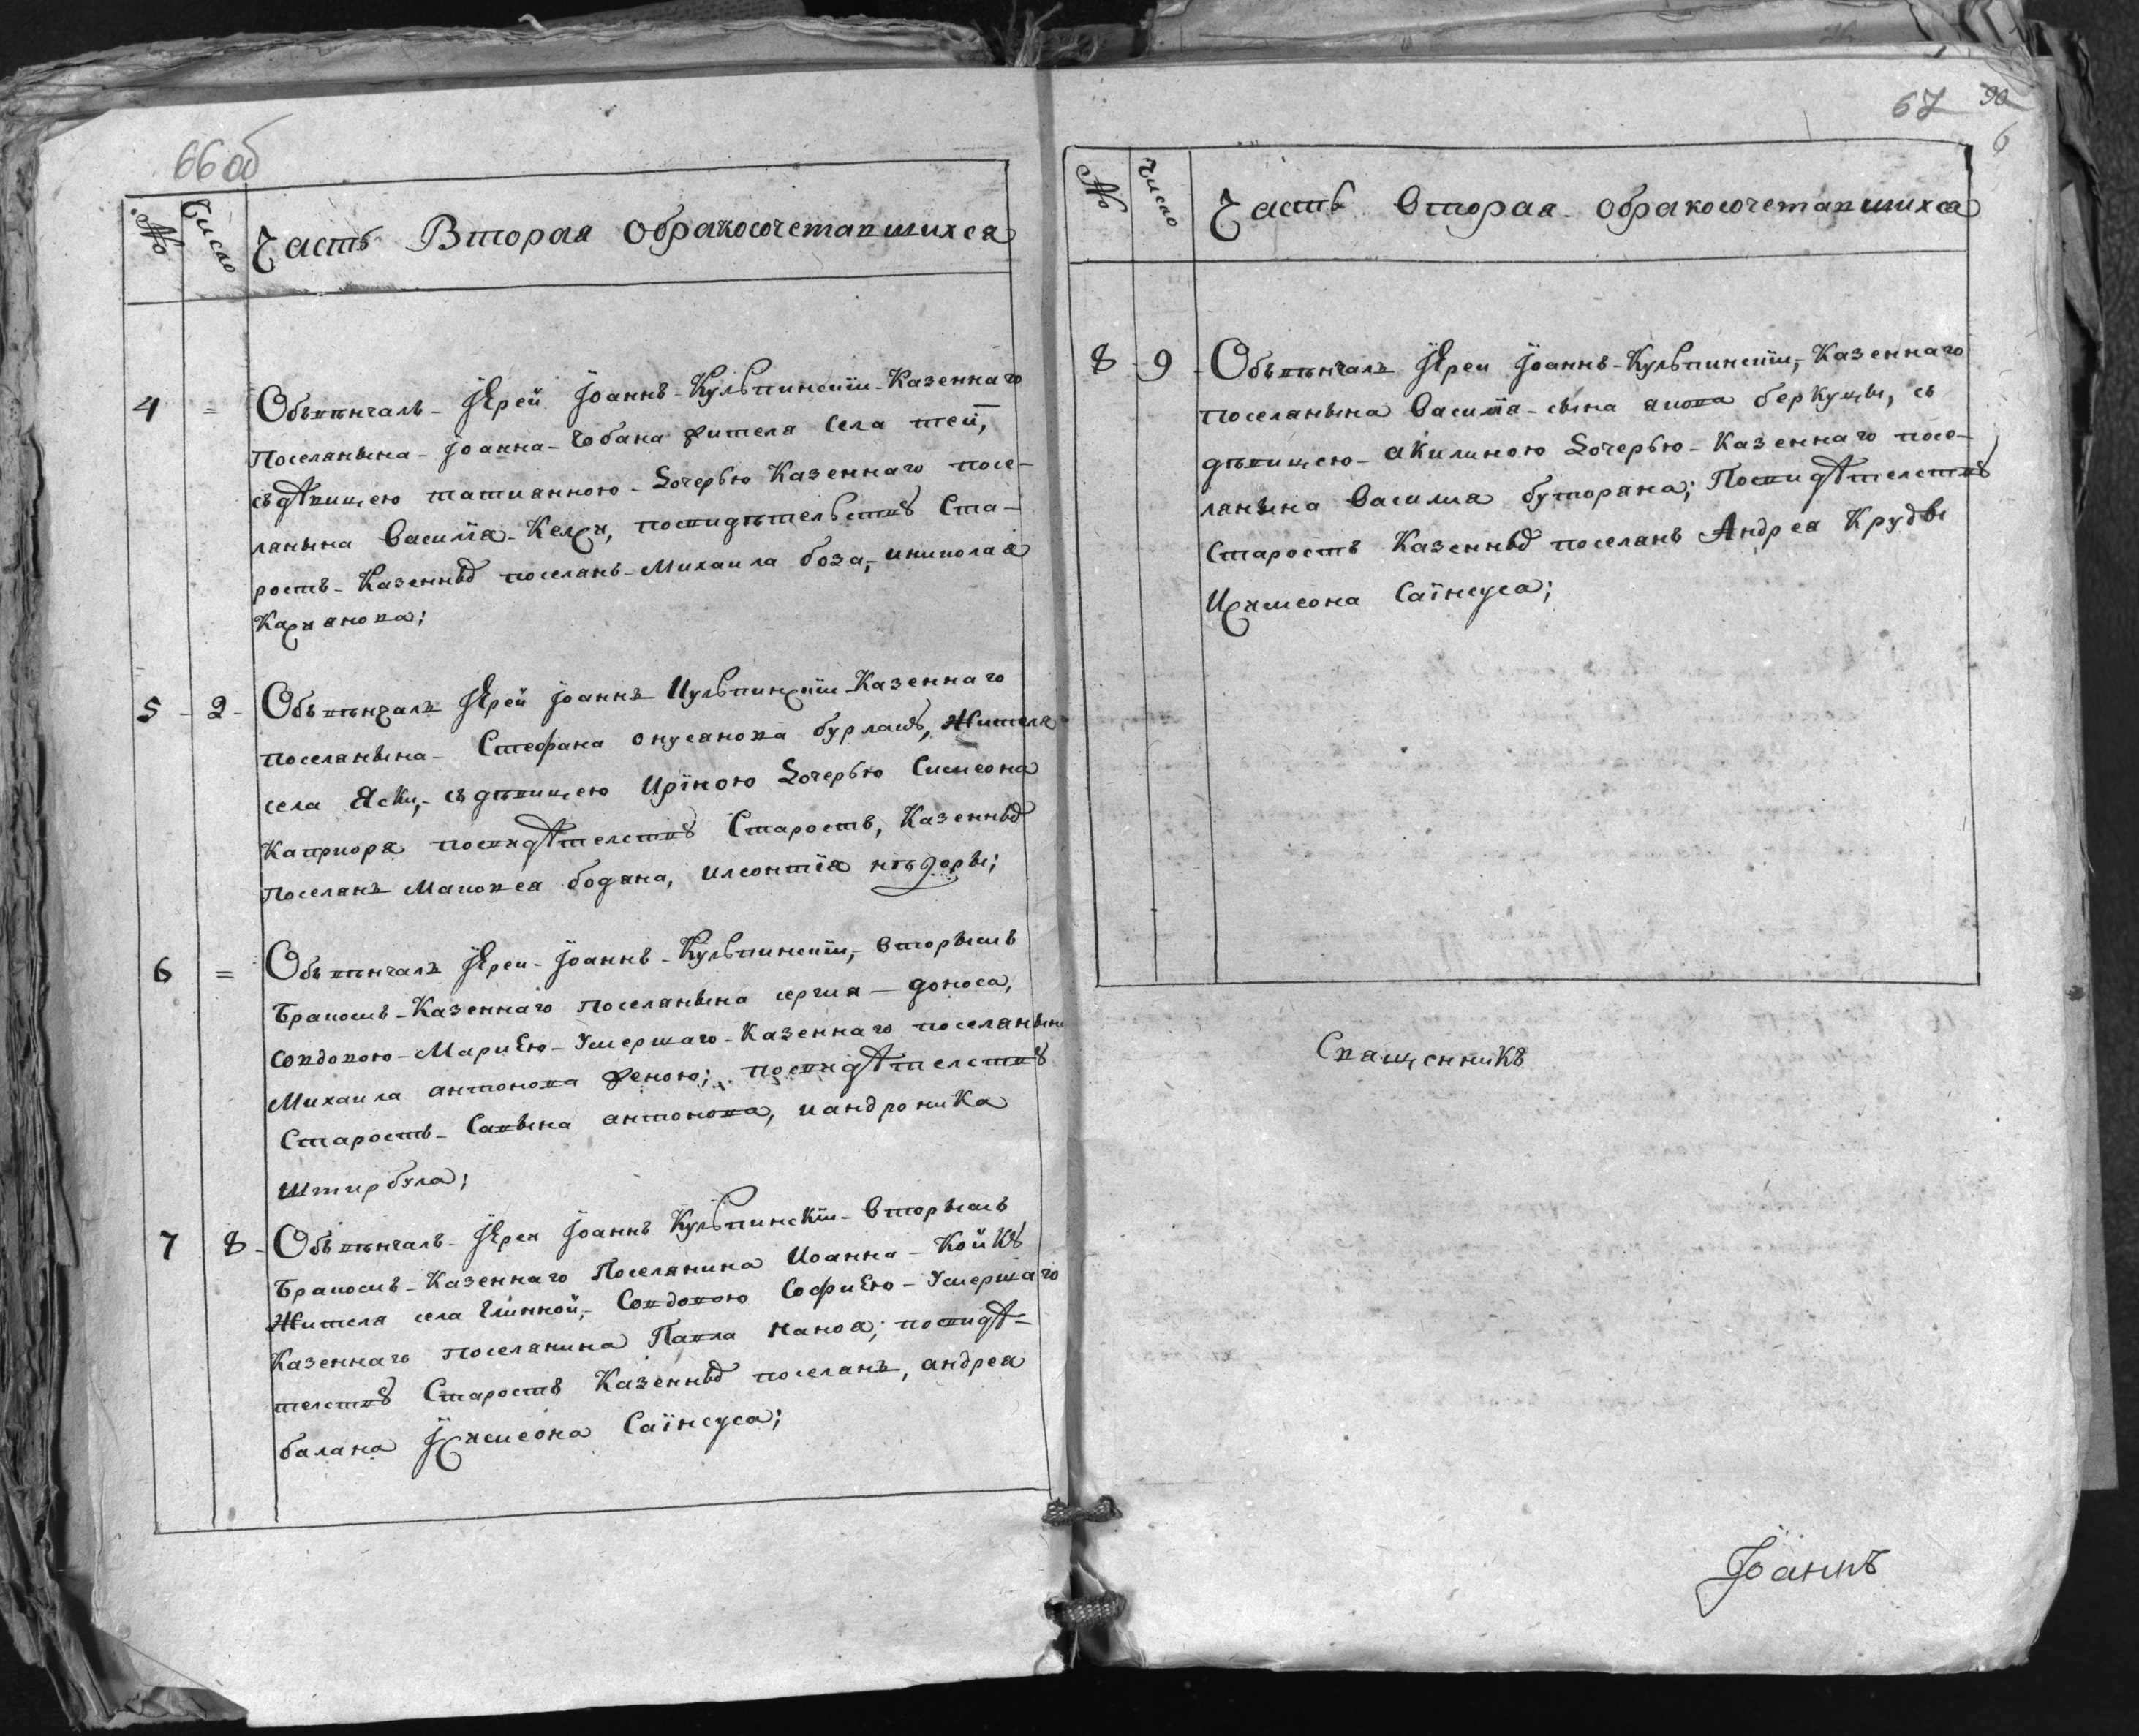 66 об
№ Число Часть Вторая обракосочетавшихся
4 = Объвѣнчалъ - Іерей Іоаннъ - Кульвинскіи - Казеннаго
поселянына - Іоанна - Чобана жителя села теи,
съ дѣвицею татианною - Дочерью Казеннаго посе-
лянына Василїа - , посвидѣтельствꙋ Ста-
ростъ - Казенныхъ поселянъ - Михаила боза, - иниколая
;
5 - 2 - Объвѣнчалъ Іерей Іоаннъ Казеннаго
поселянына - Стефана онусанова бурлакꙋ, Жителя
села Яски, - съ дѣвицею Ирїною Дочерью Симеона
Каприоря посвидѣтелствꙋ Старостъ, Казенныхъ
поселянъ бодяна, илеонтїя ;
6 = Объвѣнчалъ Іереи - Іоаннъ - Кульвинскіи, - вторымъ
бракомъ - Казеннаго поселянына сергия - доноса,
совдовою - Мариею - Умершаго - Казеннаго поселянына
Михаила антонова женою; посвидѣтелствꙋ
Старостъ - Савына антонова, иандроника
штирбꙋла;
7 8 - Объвѣнчалъ - Іереи Іоаннъ Кульвинскіи - Вторымъ
бракомъ - Казеннаго Поселянина Иоанна - Койкꙋ
Жителя села Глинной, - Совдовою Софиею - Умершаго
Казеннаго поселянина Павла ; посвидѣ-
телствꙋ Старостъ Казенныхъ поселянъ, андрея
балана Ісимеона Саїнсуса;
67 90
6
№ Число Часть вторая - обракосочетавшихся
8 - 9 - Объвѣнчалъ Іереи Іоаннъ - Кульвинскіи, - Казеннаго
поселянына Василїа - сына беркуцы, съ
дѣвицею - акилиною Дочерью - Казеннаго посе-
лянына Василиа буторана; Посвидѣтелствꙋ
Старостъ Казенныхъ поселянъ Андрея Круды
Исимеона Саїнсуса;
Священникъ
Іоаннъ